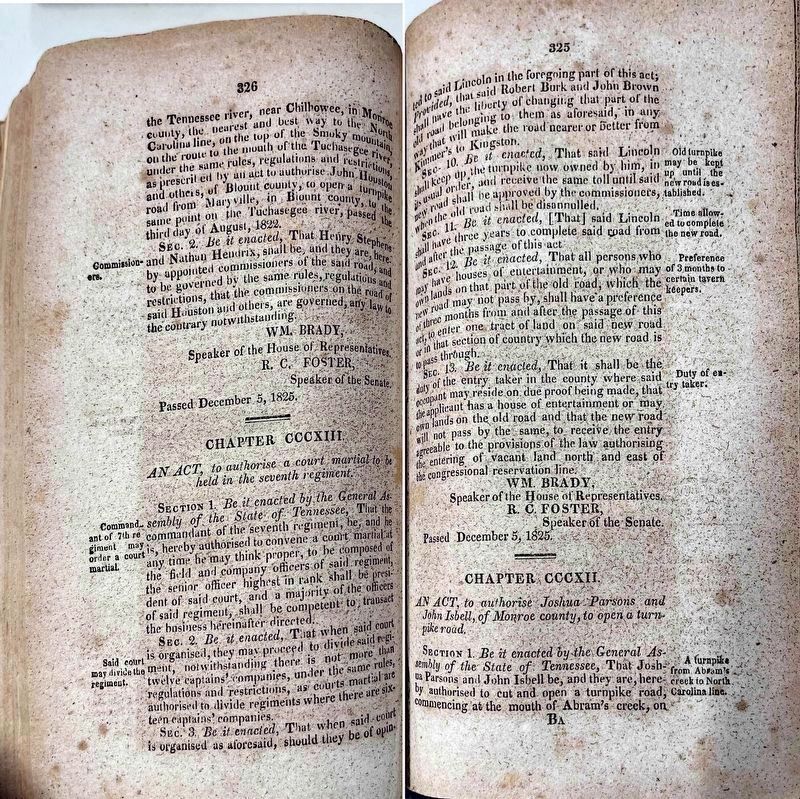 326
the Tennessee river, near Chilhowee, in Monroe
county, the nearest and best way to the North
Carolina line, on the top of the Smoky mountain,
on the route to the mouth of the Tuchasegee river,
under the same rules, regulations and restrictions,
as prescribed by an act to authorise John Houston
and others, of Blount county, to open a turnpike
road from Maryville, in Blount county, to the
same point on the Tuchasegee river, passed the
third day of August, 1822.
Commission-
ers.
SEC. 2. Be it enacted, That Henry Stephens
and Nathan Hendrix, shall be, and they are, here-
by appointed commissioners of the said road, and
to be governed by the same rules, regulations and
restrictions, that the commissioners on the road of
said Houston and others, are governed, any law to
the contrary notwithstanding.
WM. BRADY,
Speaker of the House of Representatives.
R. C. FOSTER,
Speaker of the Senate.
Passed December 5, 1825.
CHAPTER CCCXIII.
AN ACT, to authorise a court martial to be
held in the seventh regiment.
Command-
ant of 7th re
giment may
order a court
martial.
SECTION 1. Be it enacted by the General As-
sembly of the State of Tennessee, That the
commandant of the seventh regiment, be, and he
is, hereby authorised to convene a court martial at
any time he may think proper, to be composed of
the field and company officers of said regiment,
the senior officer highest in rank shall be presi-
dent of said court, and a majority of the officers
of said regiment, shall be competent to transact
the business hereinafter directed.
Said court
may divide the
regiment.
SEC. 2. Be it enacted, That when said court
is organised, they may proceed to divide said regi-
ment, notwithstanding there is not more than
twelve captains' companies, under the same rules,
regulations and restrictions, as courts martial are
authorised to divide regiments where there are six-
teen captains' companies.
SEC. 3. Be it enacted, That when said court
is organised as aforesaid, should they be of opin-
325
ted to said Lincoln in the foregoing part of this act;
Provided, that said Robert Burk and John Brown
shall have the liberty of changing that part of the
old road belonging to them as aforesaid, in any
way that will make the road nearer or better from
Kimmer's to Kingston.
SEC. 10. Be it enacted, That said Lincoln
shall keep up the turnpike now owned by him, in
its usual order, and receive the same toll until said
new road shall be approved by the commissioners,
when the old road shall be disannulled.
Old turnpike
may be kept
up until the
new road is es-
tablished.
SEC. 11. Be it enacted, [That] said Lincoln
shall have three years to complete said road from
and after the passage of this act
Time allow-
ed to complete
the new road.
SEC. 12. Be it enacted, That all persons who
may have houses of entertainment, or who may
own lands on that part of the old road, which the
new road may not pass by, shall have a preference
of three months from and after the passage of this
act, to enter one tract of land on said new road
or in that section of country which the new road is
to pass through.
Preference
of 3 months to
certain tavern
keepers.
SEC. 13. Be it enacted, That it shall be the
duty of the entry taker in the county where said
occupant may reside on due proof being made, that
the applicant has a house of entertainment or may
own lands on the old road and that the new road
will not pass by the same, to receive the entry
agreeable to the provisions of the law authorising
the entering of vacant land north and east of
the congressional reservation line.
Duty of en-
try taker.
WM. BRADY,
Speaker of the House of Representatives.
R. C. FOSTER,
Speaker of the Senate.
Passed December 5, 1825.
CHAPTER CCCXII.
AN ACT, to authorise Joshua Parsons and
John Isbell, of Monroe county, to open a turn-
pike road.
SECTION 1. Be it enacted by the General As-
sembly of the State of Tennessee, That Josh-
ua Parsons and John Isbell be, and they are, here-
by authorised to cut and open a turnpike road,
commencing at the mouth of Abram's creek, on
A turnpike
from Abram's
creek to North
Carolina line.
Ba